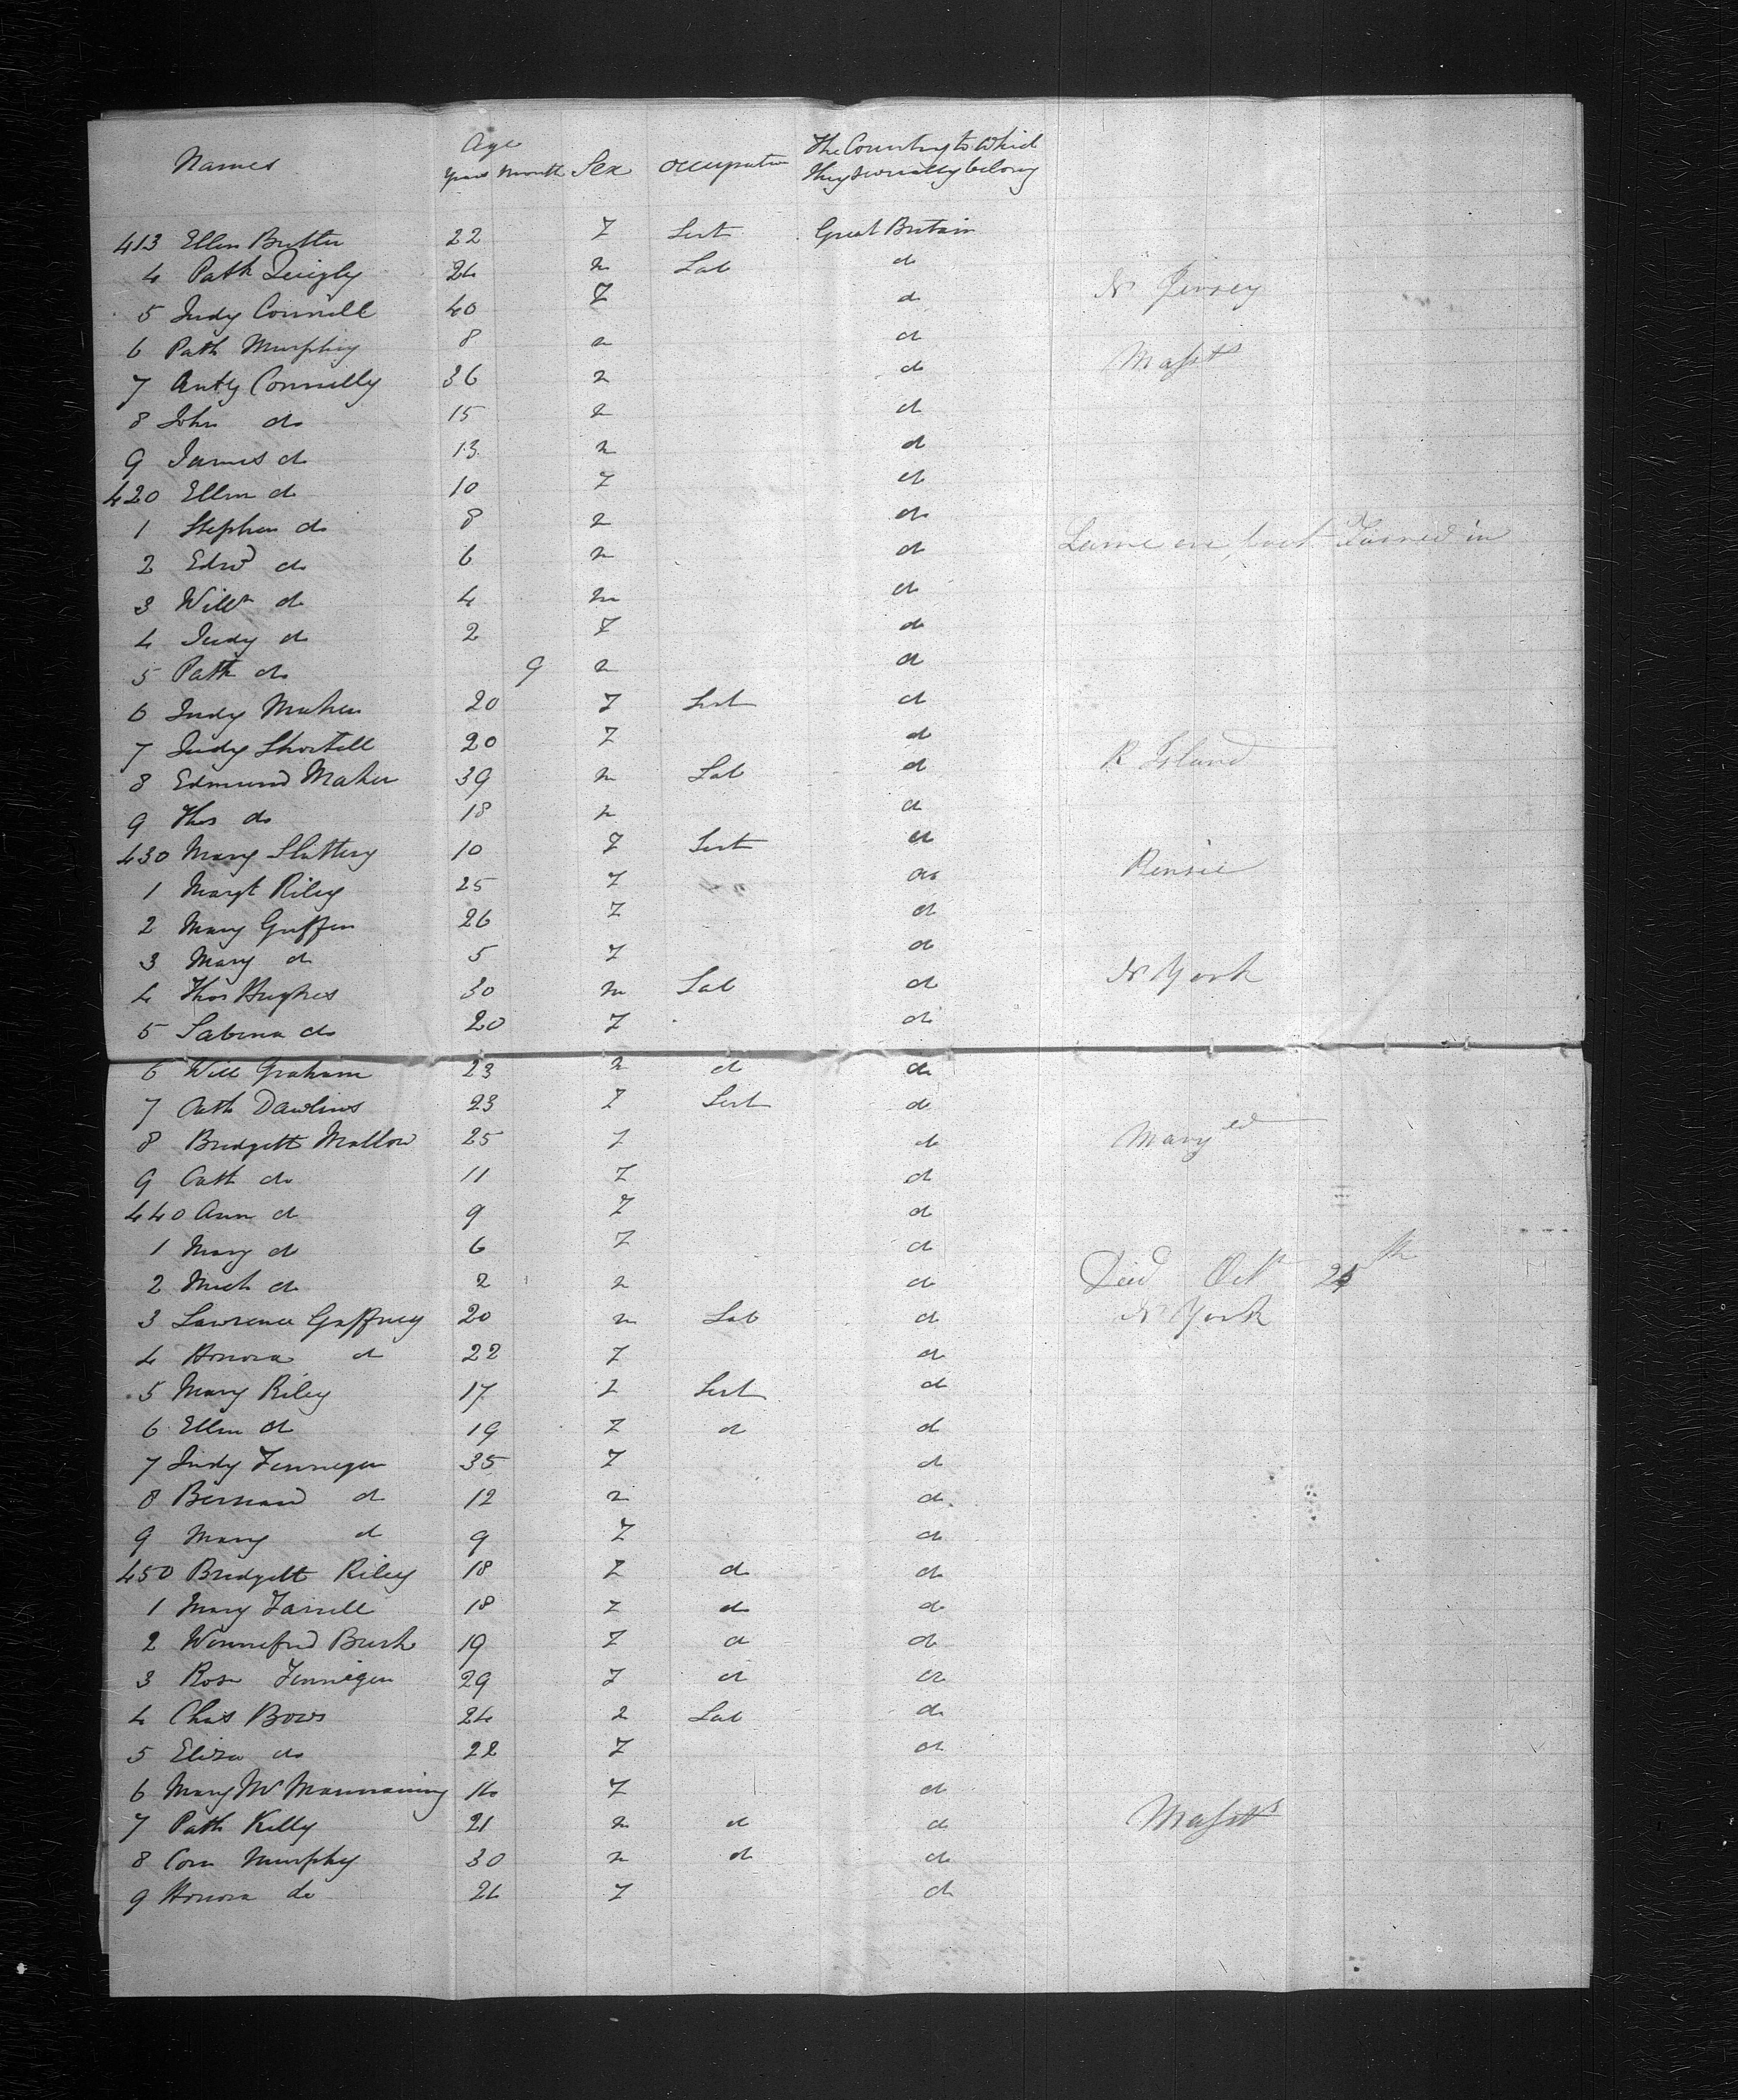 Names Age Years Month Sex Occupation The Country to Which they severally belong
413 Ellen Butler 22 F Sert Great Britain
4 Patk Quigly 24 m Lab do
5 Judy Connell 40 F do N Jersey
6 Patk Murphy 8 m do
7 Anty Connelly 36 m do Massts
8 John do 15 m do
9 James do 13 m do
420 Ellen do 10 F do
1 Stephen do 8 m do Lame one foot Turned in
2 Edwd do 6 m do
3 Willm do 4 m do
4 Judy do 2 F do
5 Patk do 9 m do
6 Judy Maher 20 F Sert do
7 Judy Shortell 20 F do R Island
8 Edmund Maher 39 m Lab do
9 Thos do 18 m do
430 Mary Slattery 10 F Sert do
1 Margt Riley 25 F do
2 Mary Griffen 26 F do
3 Mary do 5 F do
4 Thos Hughes 30 m Lab do N York
5 Sabina do 20 F do
6 Will Graham 23 m do do
7 Cath Dawlins 23 F Sert do
8 Bridgett Mallow 25 F do Maryld
9 Cath do 11 F do
440 Ann do 9 F do
1 Mary do 6 F do
2 Mich do 2 m do Died Octr 25th
3 Lawrence Gaffney 20 m Lab do N York
4 Honora do 22 F do
5 Mary Riley 17 F Sert do
6 Ellen do 19 F do do
7 Judy Finnegen 35 F do
8 Bernard do 12 m do
9 Mary do 9 F do
450 Bridgett Riley 18 F do do
1 Mary Farrell 18 F do do
2 Winnefred Burk 19 F do do
3 Rose Finnigen 29 F do do
4 Chas Bows 24 m Lab do
5 Eliza do 22 F do
6 Mary Mc 16 F do
7 Patk Kelly 21 m do do Massts
8 Corn Murphy 30 m do do
9 Honora do 26 F do